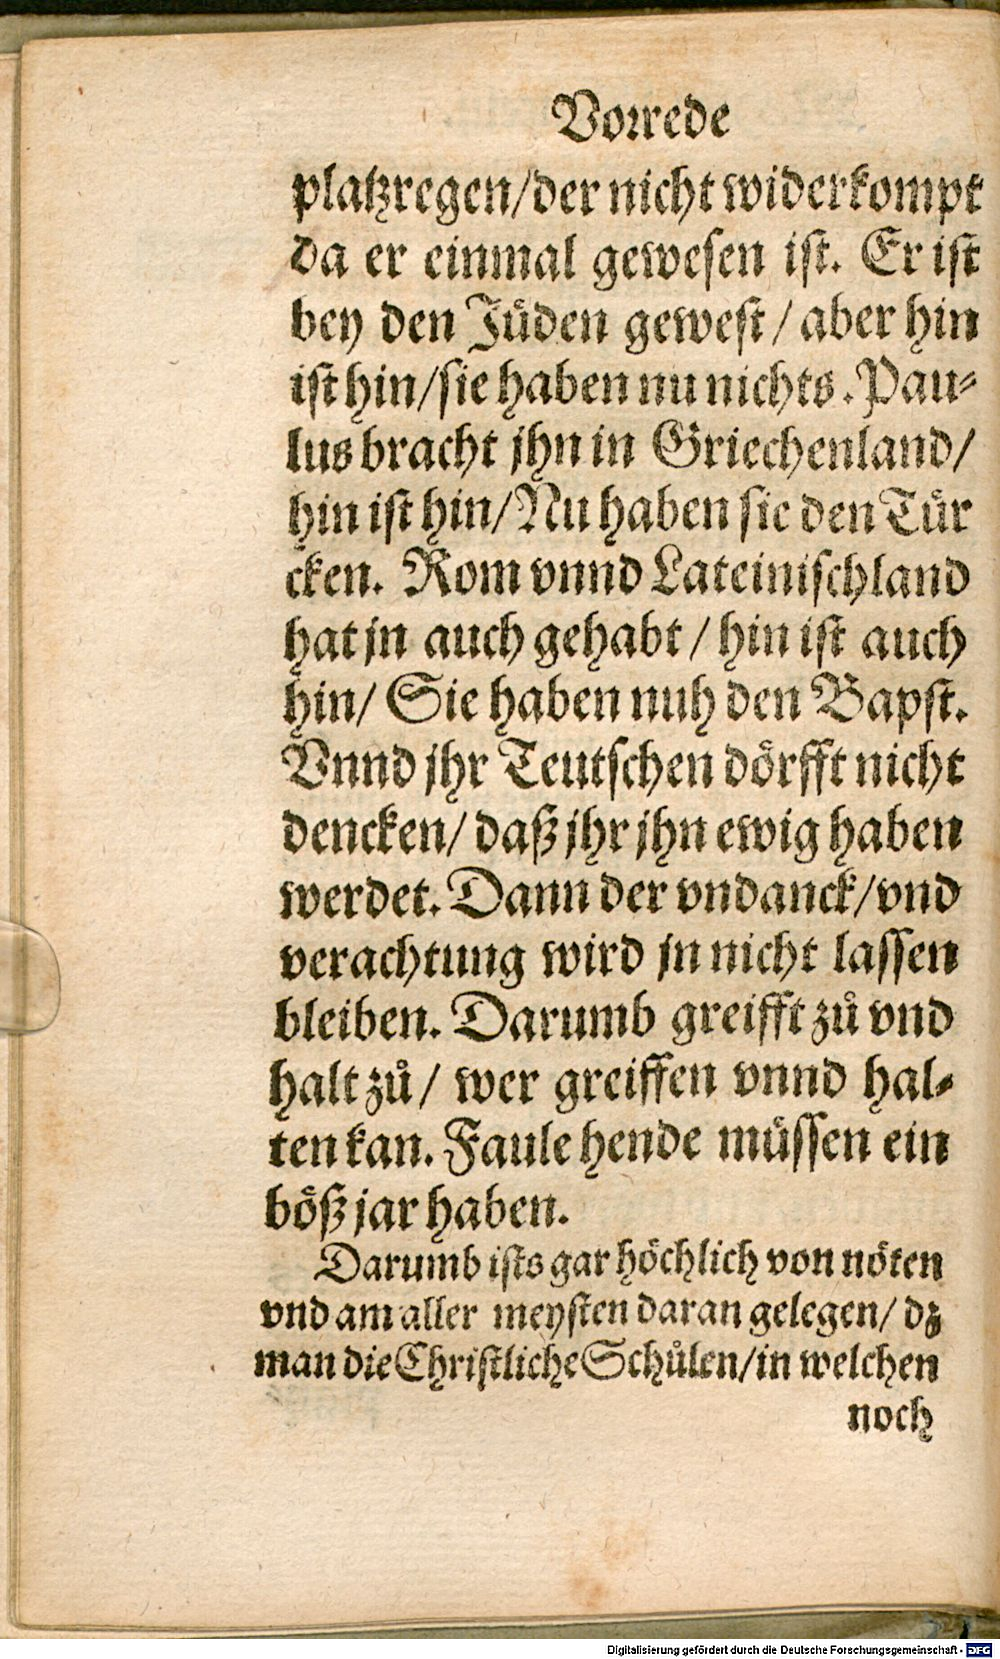 Vorrede
platzregen/der nicht widerkompt
da er einmal gewesen ist. Er ist
bey den Jüden gewest / aber hin
ist hin/sie haben nu nichts. Pau-
lus bracht jhn in Griechenland/
hin ist hin/Nu haben sie den Tür
cken. Rom vnnd Lateinischland
hat jn auch gehabt / hin ist auch
hin/ Sie haben nuh den Bapst.
Vnnd jhr Teutschen dörfft nicht
dencken/ daß jhr jhn ewig haben
werdet. Dann der vndanck/vnd
verachtung wird jn nicht lassen
bleiben. Darumb greifft zů vnd
halt zů/ wer greiffen vnnd hal-
ten kan. Faule hende müssen ein
böß jar haben.
Darumb ists gar höchlich von nöten
vnd am aller meysten daran gelegen/ dz
man die Christliche Schůlen/in welchen
noch
Digitalisierung gefördert durch die Deutsche Forschungsgemeinschaft - DFG